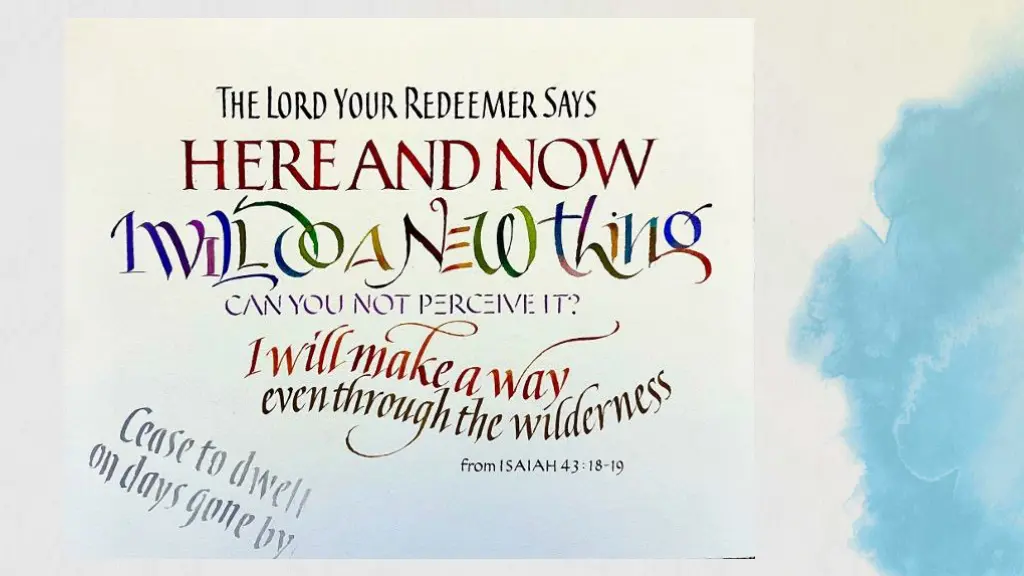 THE LORD YOUR REDEEMER SAYS
HERE AND NOW
I WILL DO A NEW thing
CAN YOU NOT PERCEIVE IT?
I will make a way
even through the wilderness
from ISAIAH 43:18-19
Cease to dwell
on days gone by.